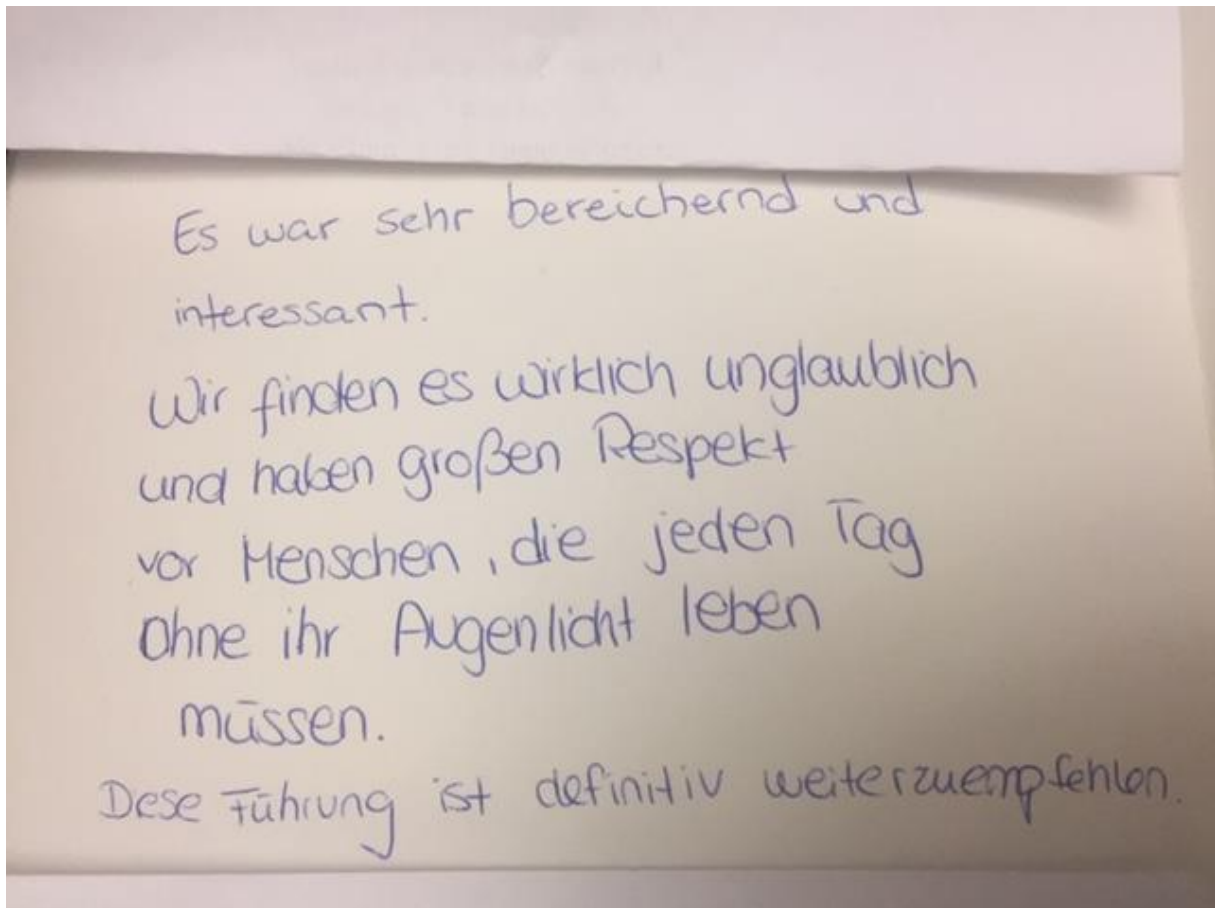 Es war sehr bereichernd und
interessant.
Wir finden es wirklich unglaublich
und haben großen Respekt
vor Menschen, die jeden Tag
ohne ihr Augenlicht leben
müssen.
Dese Führung ist definitiv weiterzuempfehlen.